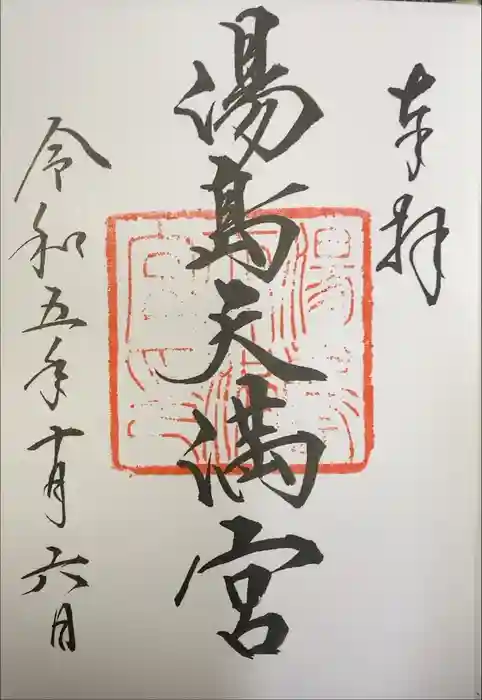 奉拝
湯島天満宮
令和五年十月六日